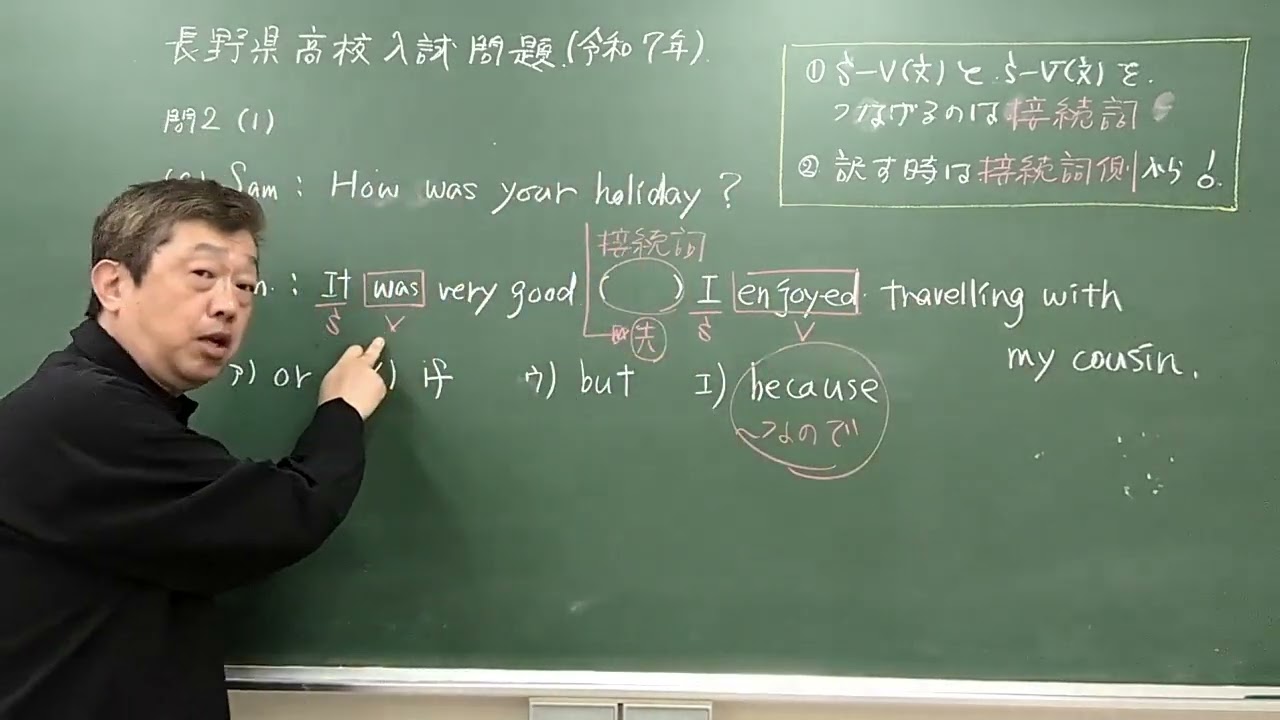 長野県高校入試問題.(令和7年).
① S-V(文)と.S-V(文)を.
つなげるのは接続詞
② 訳す時は接続詞側から!
問2 (1)
Sam : How was your holiday ?
接続詞
n. : It was very good ( ) I enjoyed travelling with
my cousin.
S V 先 S V
ア) or ) if ウ) but エ) because
〜なので